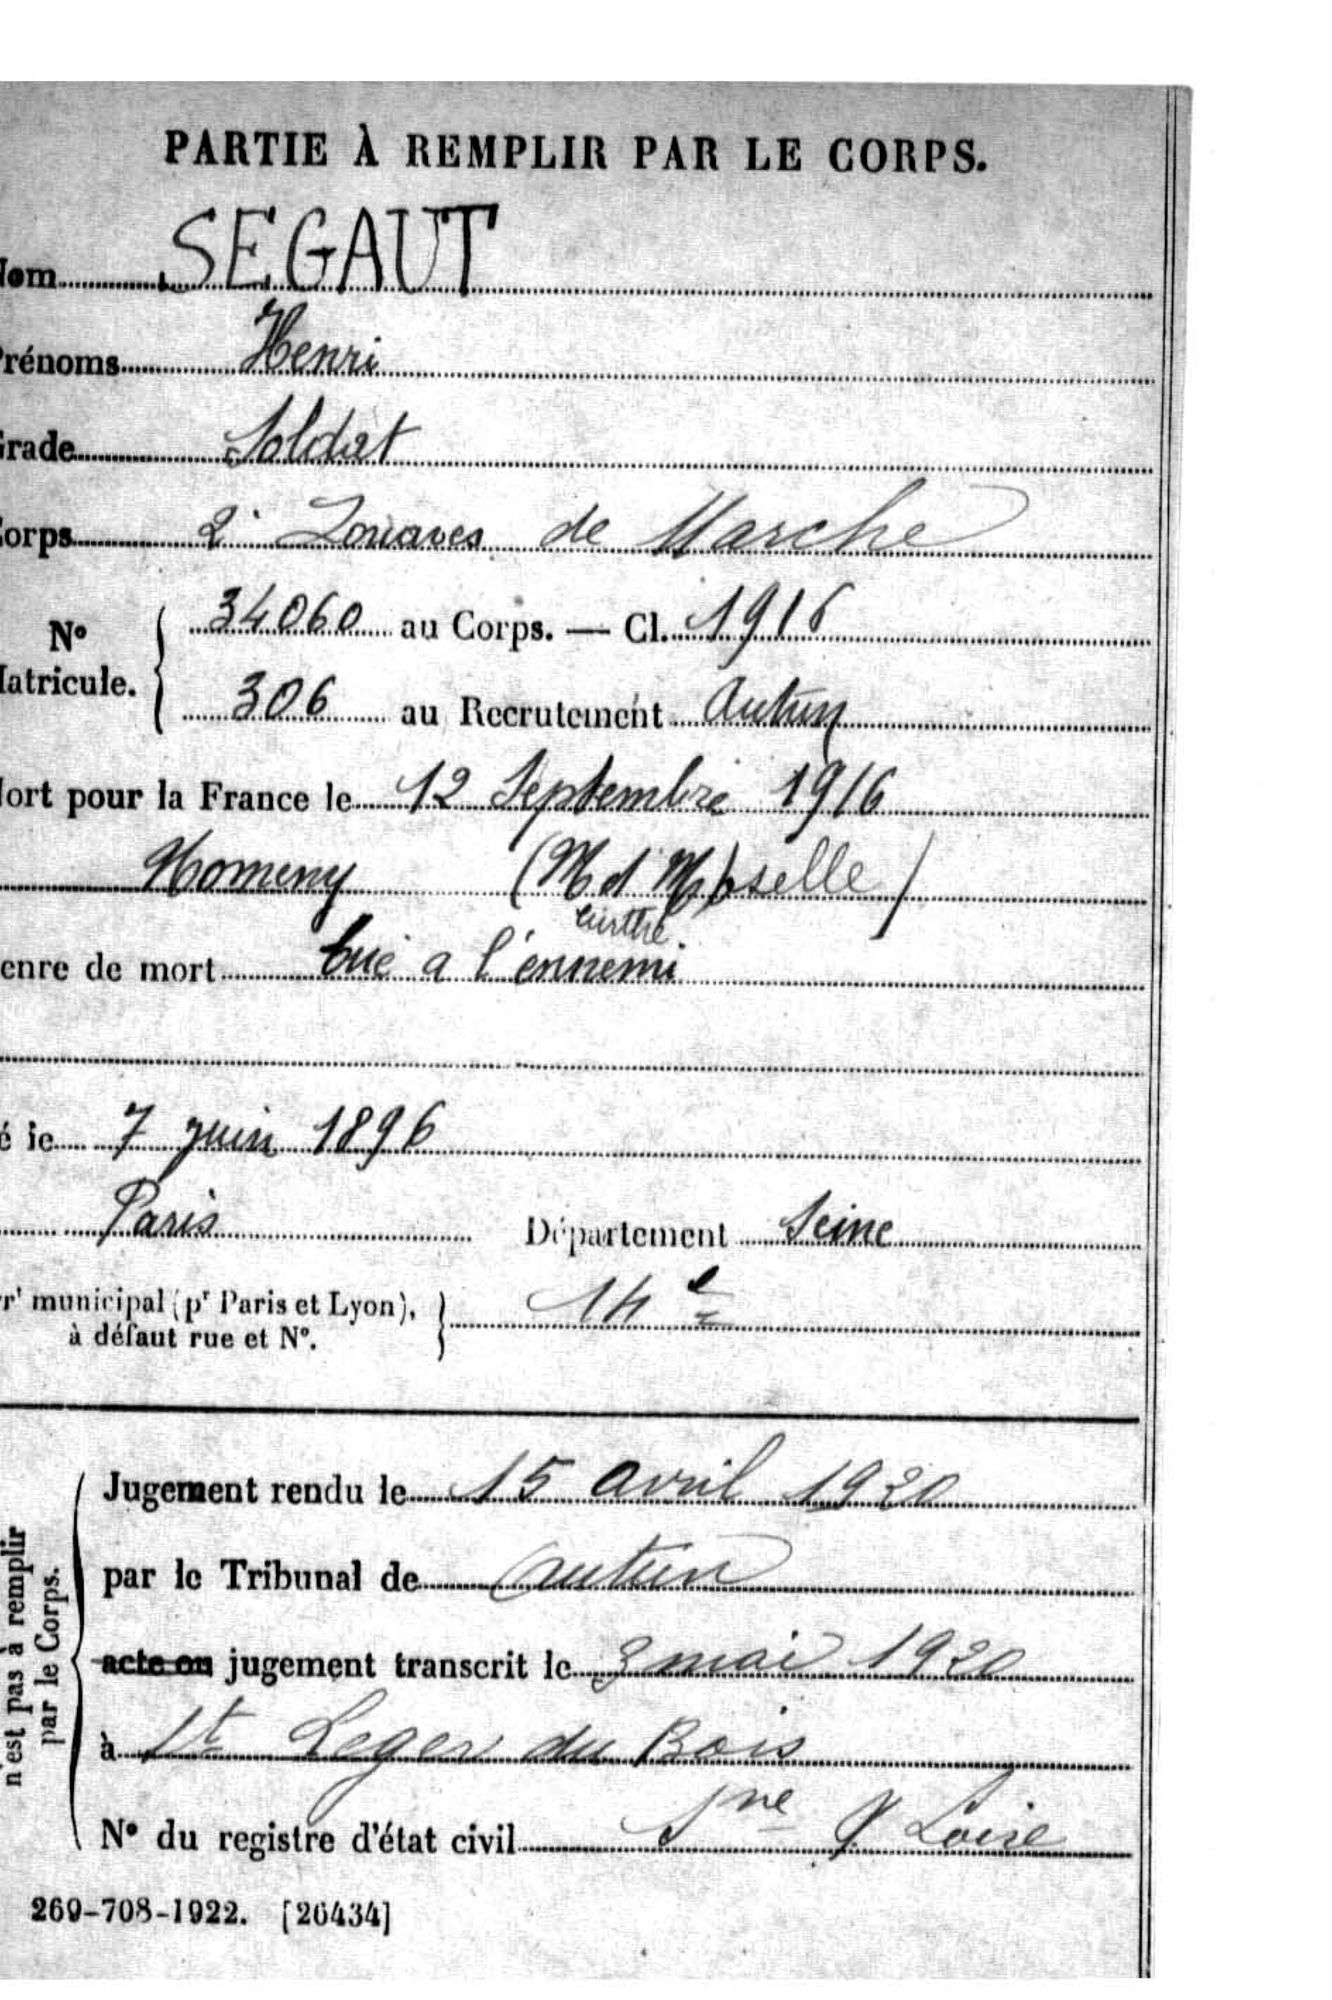 PARTIE À REMPLIR PAR LE CORPS.
Nom SEGAUT
Prénoms Henri
Grade Soldat
Corps 2e Zouaves de Marche
N° Matricule. 34060 au Corps. — Cl. 1916
306 au Recrutement Autun
Mort pour la France le 12 Septembre 1916
Nomeny (M et Moselle)
eurthe
Genre de mort tué a l'ennemi
é le 7 juin 1896
Paris Département Seine
r' municipal (pr Paris et Lyon), 14e
à défaut rue et N°.
Jugement rendu le 15 avril 1920
par le Tribunal de Autun
acte ou jugement transcrit le 3 mai 1920
à St Leger du Bois
N° du registre d'état civil Sne & Loire
n'est pas à remplir
par le Corps.
269-708-1922. [26434]